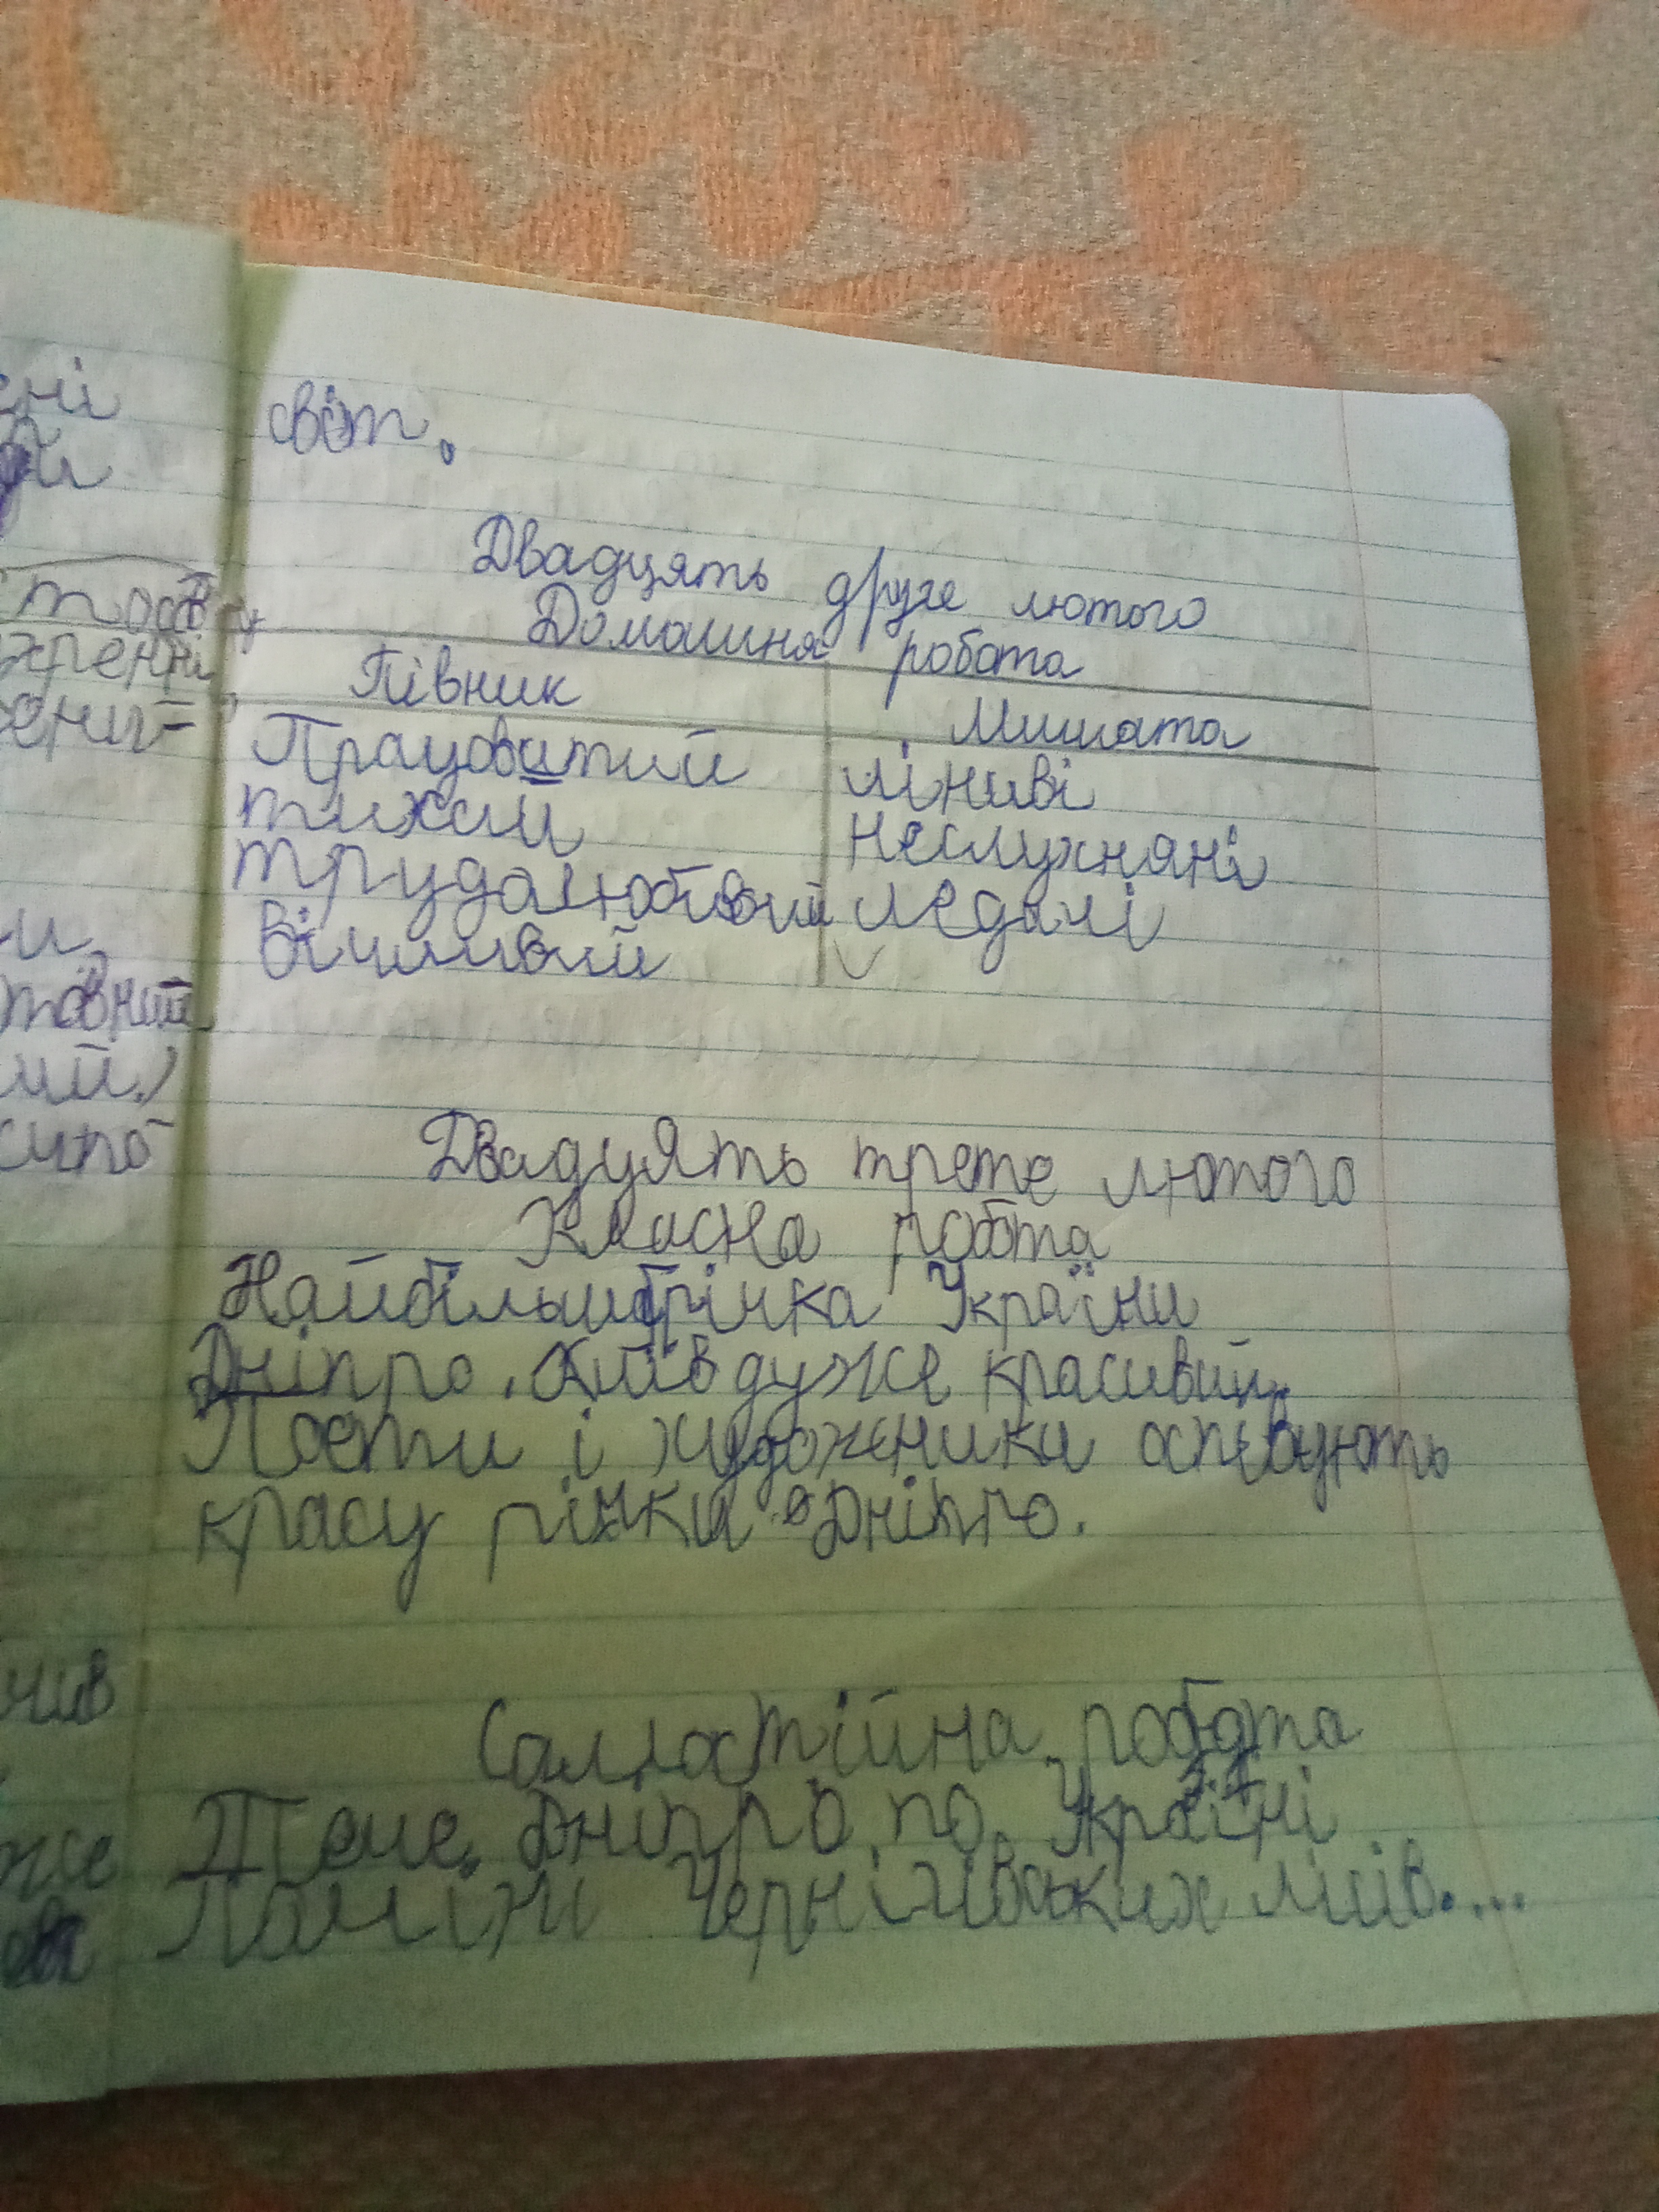 світ.
Двадцять друге лютого
Домашня робота
Півник Мишата
Працовитий ліниві
тихий неслухняні
трудолюбивий ледачі
вічливий
Двадцять третє лютого
Класна робота
Найбільша річка України
Дніпро. Київ дуже красивий.
Поети і художники оспівують
красу річки Дніпро.
Самостійна робота
Тече Дніпро по Україні
Чернігівських